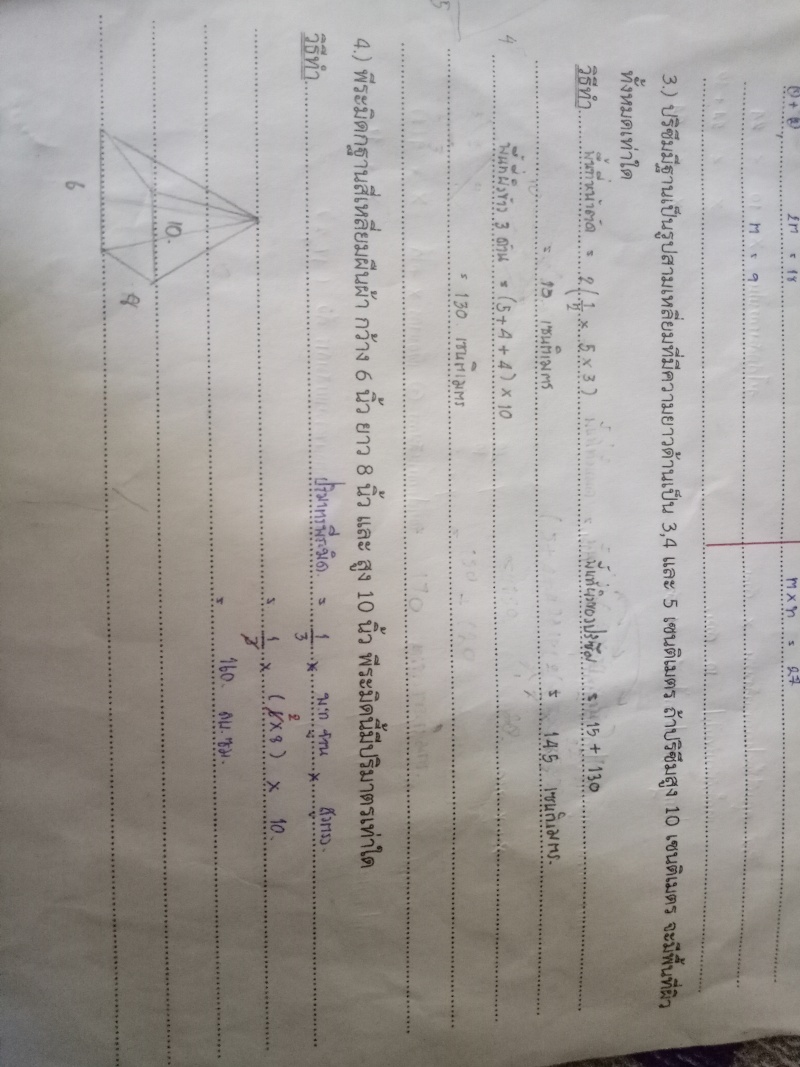 3m = 27
m × n = 27
m = 9
3.) ปริซึมมีฐานเป็นรูปสามเหลี่ยมที่มีความยาวด้านเป็น 3,4 และ 5 เซนติเมตร ถ้าปริซึมสูง 10 เซนติเมตร จะมีพื้นที่ผิว
ทั้งหมดเท่าใด
วิธีทำ พื้นที่หน้าตัด = 2(1/2 × 5 × 3)
= 15 เซนติเมตร
พื้นที่ผิวข้าง 3 ด้าน = (5+4+4) × 10
= 130 เซนติเมตร
พื้นที่ผิวของปริซึม = 15 + 130
= 145 เซนติเมตร.
4.) พีระมิดฐานสี่เหลี่ยมผืนผ้า กว้าง 6 นิ้ว ยาว 8 นิ้ว และ สูง 10 นิ้ว พีระมิดนี้มีปริมาตรเท่าใด
วิธีทำ
ปริมาตรพีระมิด = 1/3 × พ.ท. ฐาน × สูง
= 1/3 × (6×8) × 10
2
= 160 ลบ.ซม.
10
6
8